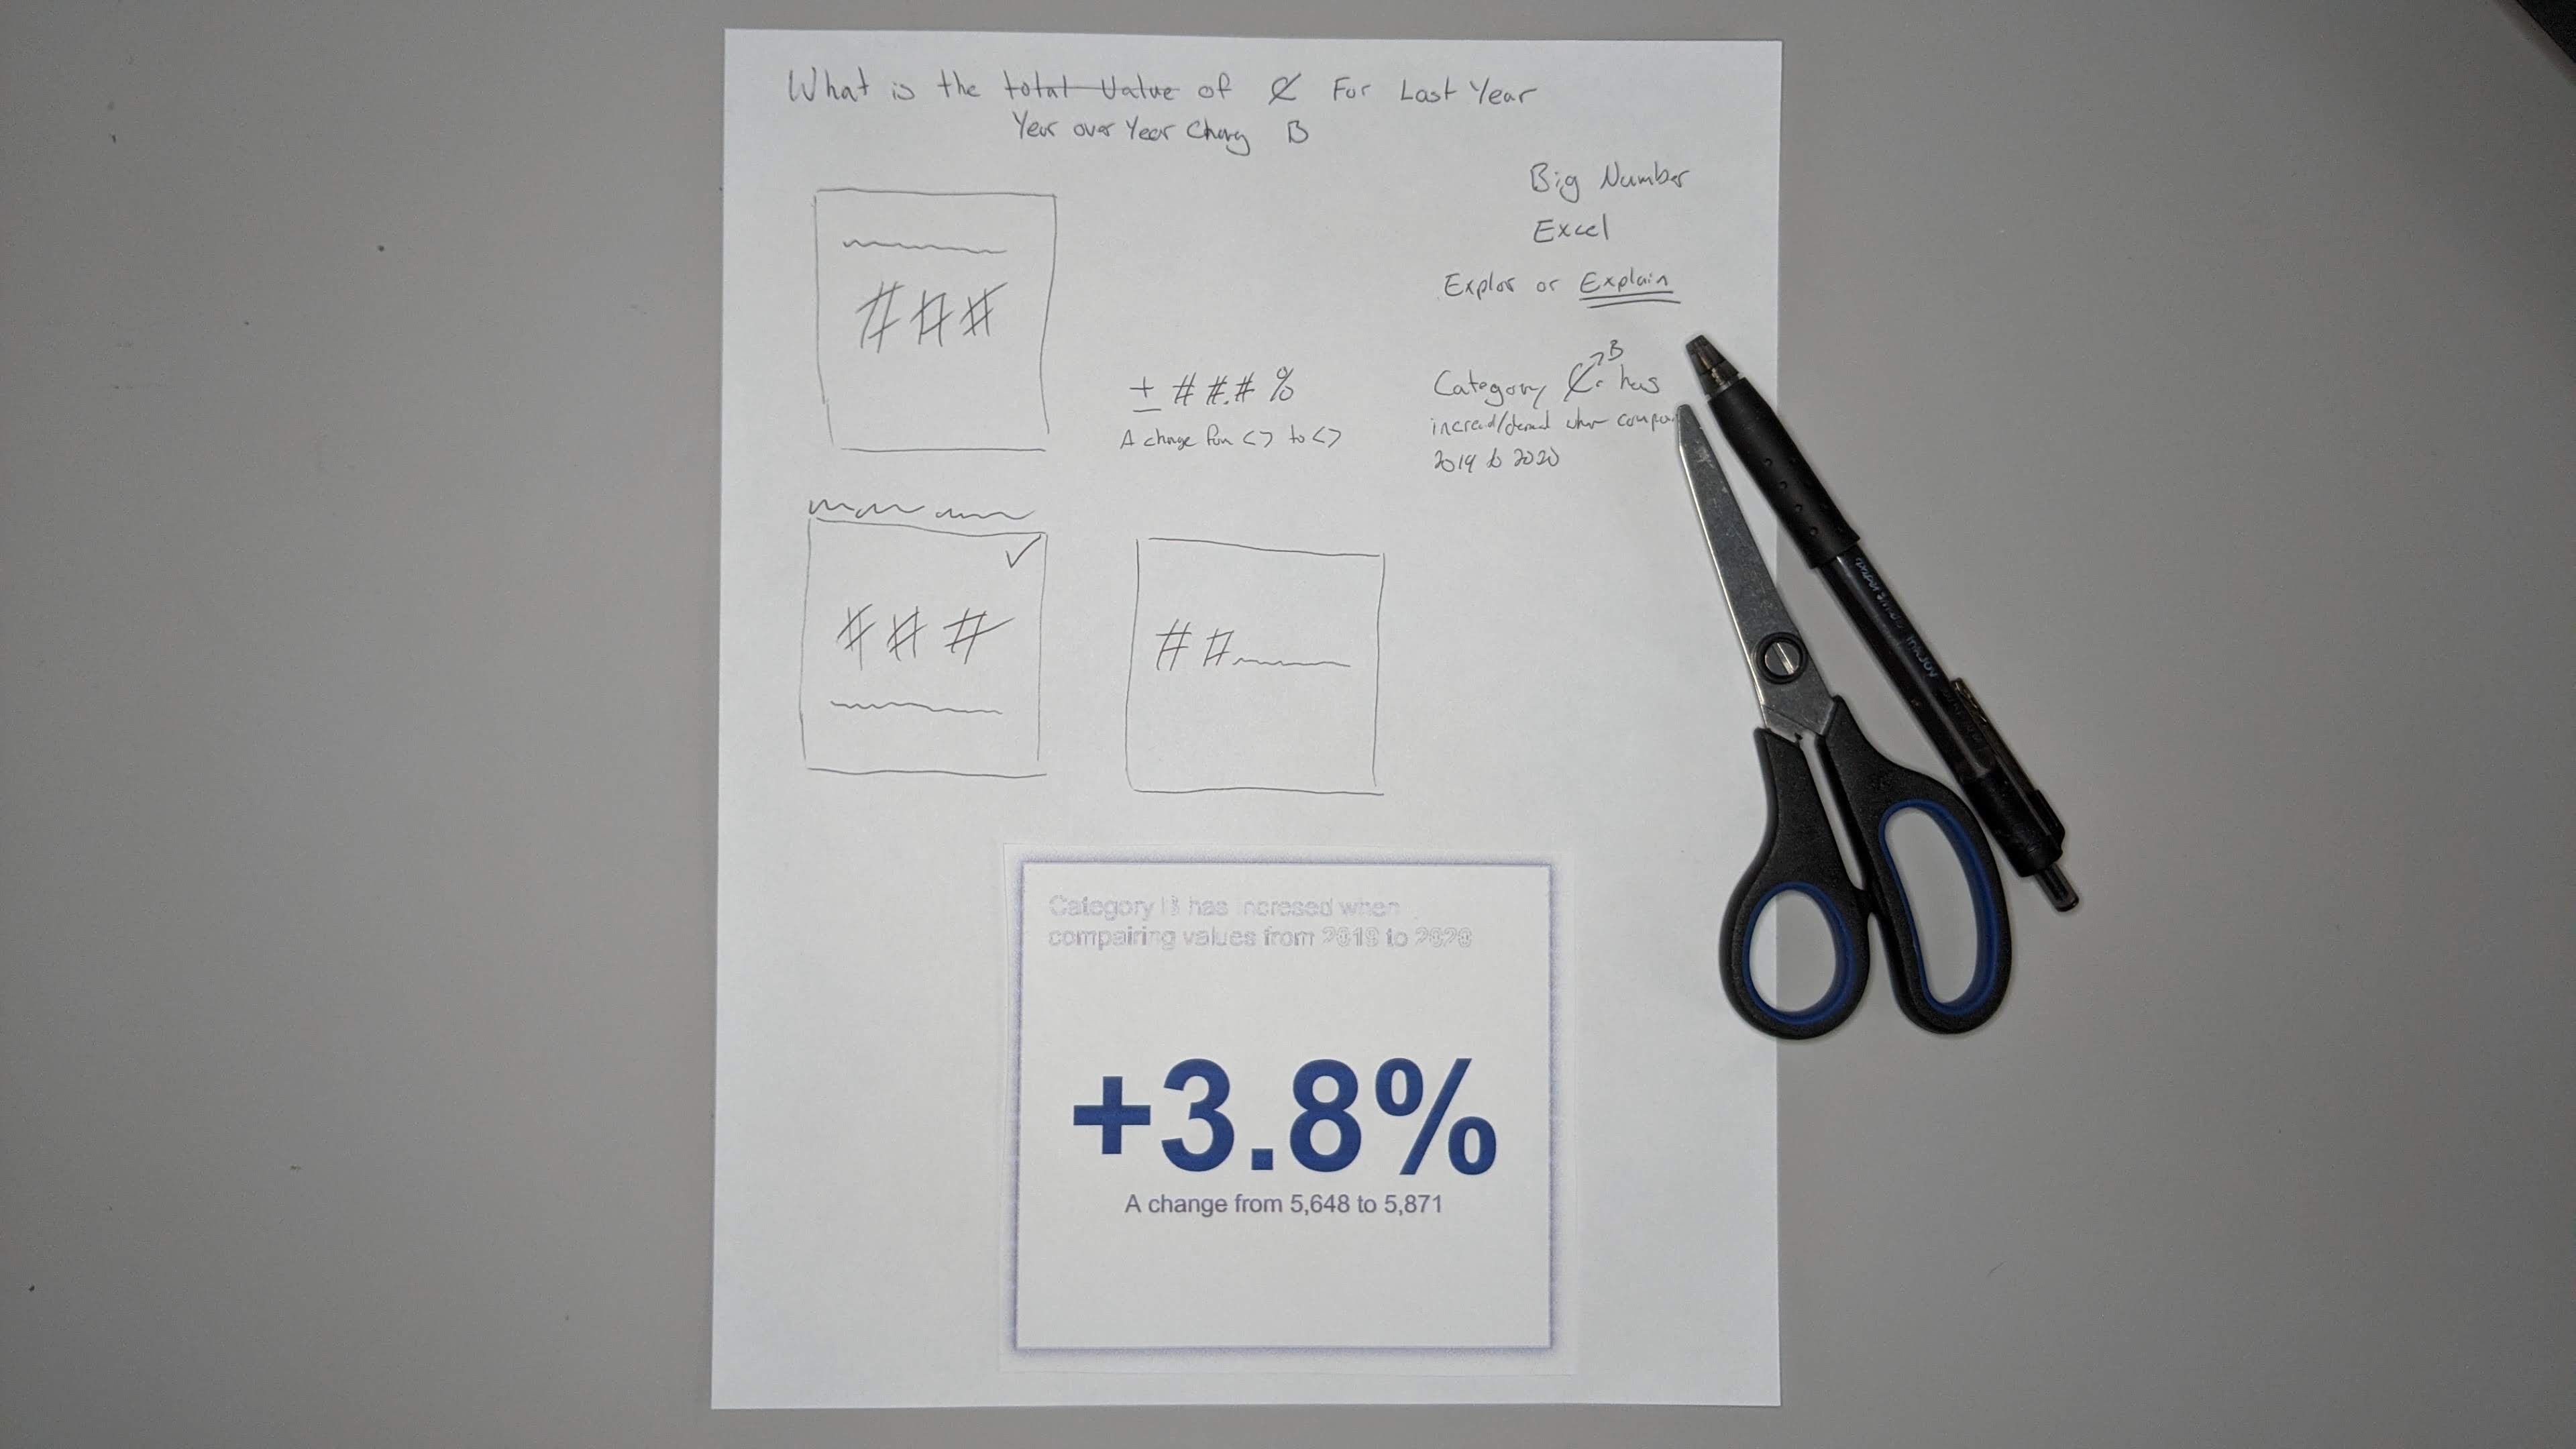 What is the total value of C For Last Year
Year over Year Chang B
Big Number
Excel
Explor or Explain
# # #
± # #.# %
A change from <> to <>
Category C B has
when compar
2019 to 2020
# # #
# #
Category B has incresed when
compairing values from 2019 to 2020
+3.8%
A change from 5,648 to 5,871